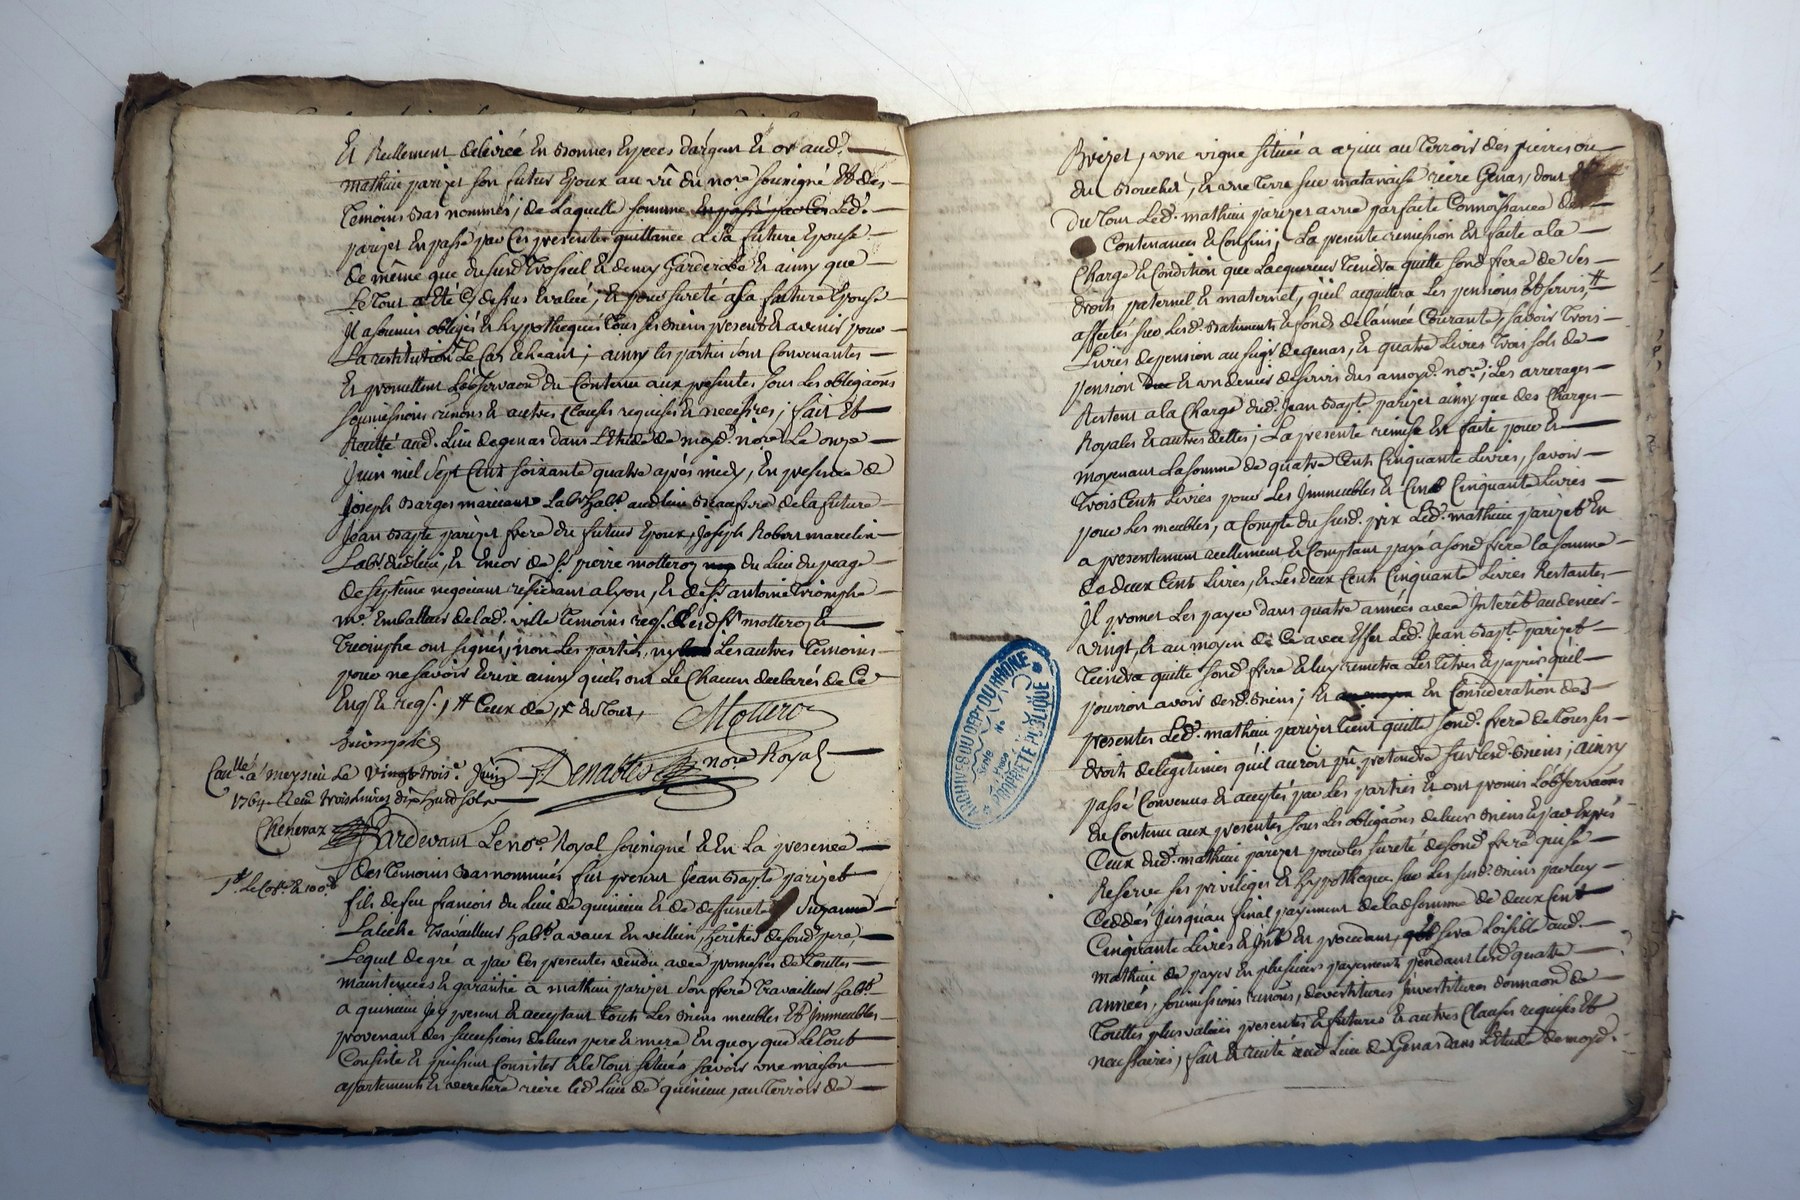 Et Reellement delivrée En bonnes Especes d'argent Et or aud.
mathieu parizet son futur Epoux au vû du no.re soussigné Et des
temoins bas nommés; de Laquelle somme En passé par Ces Led.
parizet En passe par Ces presentes quittance a Sa future Epouse
de même que du susd. trosseil Et Garderobe Et ainsy que
Le tout a Eté Cy dessus Evalué, Et pour sureté a sa future Epouse
Il a soumis obligés Et hypothequés tous ses biens presents Et avenir pour
La restitution Le Cas Echeant; ainsy les parties sont Convenantes
Et promettent L'observaon du Contenu aux presentes sous les obligaons
soumissions renons Et autres Clauses requises Et necessires; fait Et
Recitté aud. Lieu de genas dans L'Etude de moyd. no.re Le onze
Juin mil sept Cent soixante quatre après midy, En presence de
Joseph Barges Lab.r hab.t aud. lieu Beaufrere de la future
Jean Bapte parizet frere du futeur Epoux, Joseph Robert marcelin
Lab.r dud. lieu, Et Encor de S.r pierre molleroz du Lieu du peage
negociant résidant a Lyon, Et de S.r antoine triomphe
m.e Emballeur de lad. ville temoins req.s Lesd. S.rs molleroz Et
triomphe ont signés, non Les parties, ny Les autres temoins
pour ne savoir Ecrire ainsy quils ont Le Chacun declarés de Ce
Enq.s Et req.s,
Mollero
triomphe
Denables no.re Royal
Con.llé a meysieu Le vingt trois.e Juin
1764 Reçu trois livres dix huit sols
Chenevaz
Pardevant Le no.re Royal soussigné Et En La presence
des temoins bas nommés fut present Jean Bapte parizet
fils de feu francois du lieu de quinieu Et de deffunte Suzanne
travailleur hab.t a vaux En vellein, heritier de sond. pere,
Lequel de gré a par Ces presentes vendu avec promesses de touttes
maintenues Et garantie à mathieu parizet son frere travailleur hab.t
a quinieu Icy present Et acceptant touts Les biens meubles Et Immeubles
provenant des successions de leur pere Et mere En quoy que Le tout
Consiste Et puissent Consister Et le tout situés savoir une maison
apartement Et verchere riere led. Lieu de quinieu, au terroir de
Brizet, une vigne située a azieu au terroir des pierres ou
du Boucher, Et une terre sue matanaise riere Genas, dont
du tout Led. mathieu parizet a une parfaite Connoissance des
Contenances Et Confins; La presente remission Est faite a la
Charge Et Condition que L'acquereur tiendra quitte sond. frere de ses
droits paternel Et maternel, qu'il acquittera Les pensions Et servis,
affectés sur Lesd. Batiments Et fonds de l'année Courante, savoir trois
Livres de pension au seig.r de genas, Et quatre Livres trois sols de
pension Et un denier de servis dus a moyd. no.re; Les arrerages
Restent a la Charge dud. Jean Bapte parizet ainsy que des Charges
Royales Et autres dettes; La presente remise Est faite pour Et
moyenant La somme de quatre Cent Cinquante Livres, savoir
trois Cent Livres pour Les Immeubles Et Cent Cinquante Livres
pour Les meubles, a Compte du susd. prix Led. mathieu parizet En
a presentement reellement Et Comptant payé a sond. frere la somme
de deux Cent Livres, Et Les deux Cent Cinquante Livres Restantes
Il promet Les payer dans quatre années avec Interêt au denier
vingt, Et au moyen de Ce avec Effet Led. Jean Bapte parizet
tiendra quitte sond. frere Et luy remettra Les titres Et papiers qu'il
pourroit avoir desd. biens; Et En Consideration des
presentes Led. mathieu parizet tient quitte sond. frere de tous ses
droits de legitimes qu'il auroit pû pretendre sur lesd. biens; ainsy
passé Convenus Et acceptés par Les parties Et ont promis L'observaons
du Contenu aux presentes sous Les obligaons de leurs biens Et par Exprès
Ceux dud. mathieu parizet pour les sureté de sond. frere qui se
Reserve ses privileges Et hypotheque sur Les susd. biens par luy
Ceddés Jusqu'au final payement de lad. somme de deux Cent
Cinquante Livres Et Int.t En procedant, sera Loisible aud.
mathieu de payer En plusieurs payements pendant lesd. quatre
années, soumissions renons, devestitures Investitures donnaon de
touttes plus values presentes Et futures Et autres Clauses requises Et
necessaires, fait Et recitté aud. Lieu de Genas dans L'Etude de moyd.
ARCHIVES DU DEPT DU RHONE
PROPRIÉTÉ PUBLIQUE